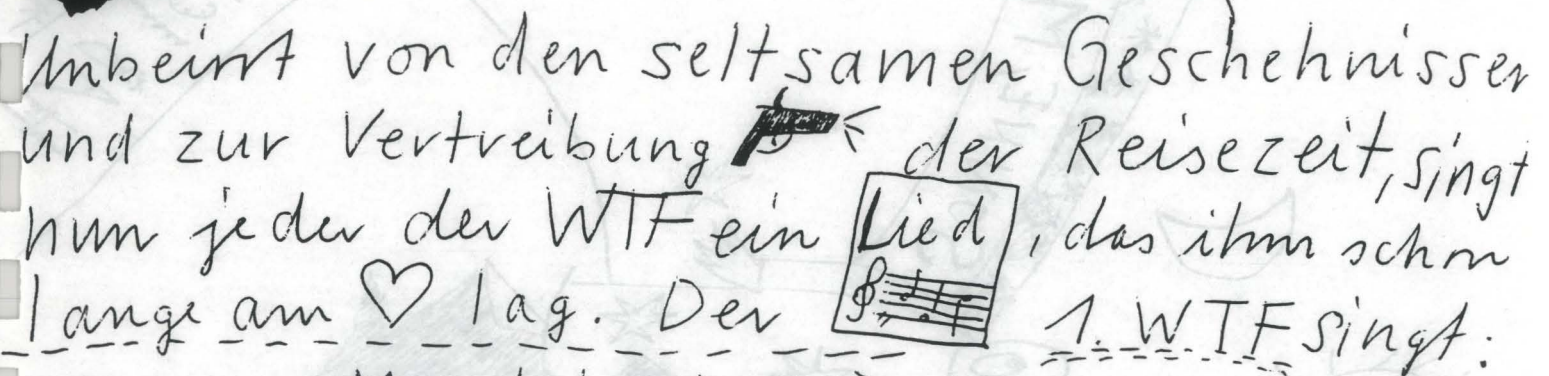 Unbeirrt von den seltsamen Geschehnissen
und zur Vertreibung der Reisezeit, singt
nun jeder der WTF ein Lied, das ihm schon
lange am ♡ lag. Der 1. WTF singt: